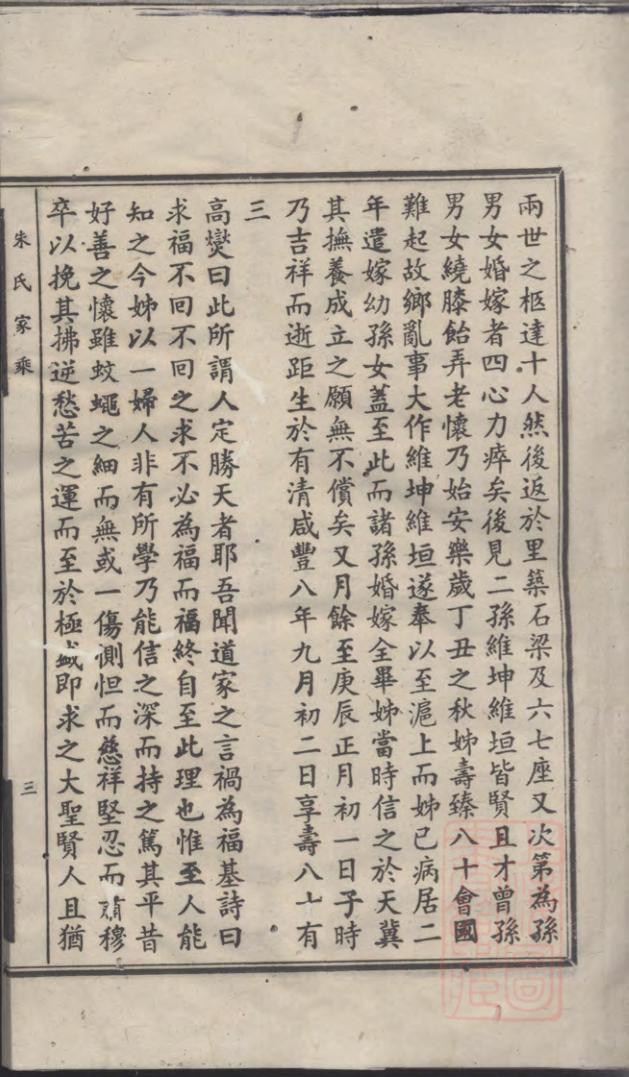 兩世之柩達十人然後返於里築石梁及六七座又次第為孫
男女婚嫁者四心力瘁矣後見二孫維坤維垣皆賢且才曾孫
男女繞膝飴弄老懷乃始安樂歲丁丑之秋姊壽臻八十會國
難起故鄉亂事大作維坤維垣遂奉以至滬上而姊已病居二
年遣嫁幼孫女蓋至此而諸孫婚嫁全畢姊當時信之於天冀
其撫養成立之願無不償矣又月餘至庚辰正月初一日子時
乃吉祥而逝距生於有清咸豐八年九月初二日享壽八十有
三
高燮曰此所謂人定勝天者耶吾聞道家之言禍為福基詩曰
求福不回不回之求不必為福而福終自至此理也惟至人能
知之今姊以一婦人非有所學乃能信之深而持之篤其平昔
好善之懷雖蚊蠅之細而無或一傷惻怛而慈祥堅忍而穆
卒以挽其拂逆愁苦之運而至於極盛即求之大聖賢人且猶
朱氏家乘
三